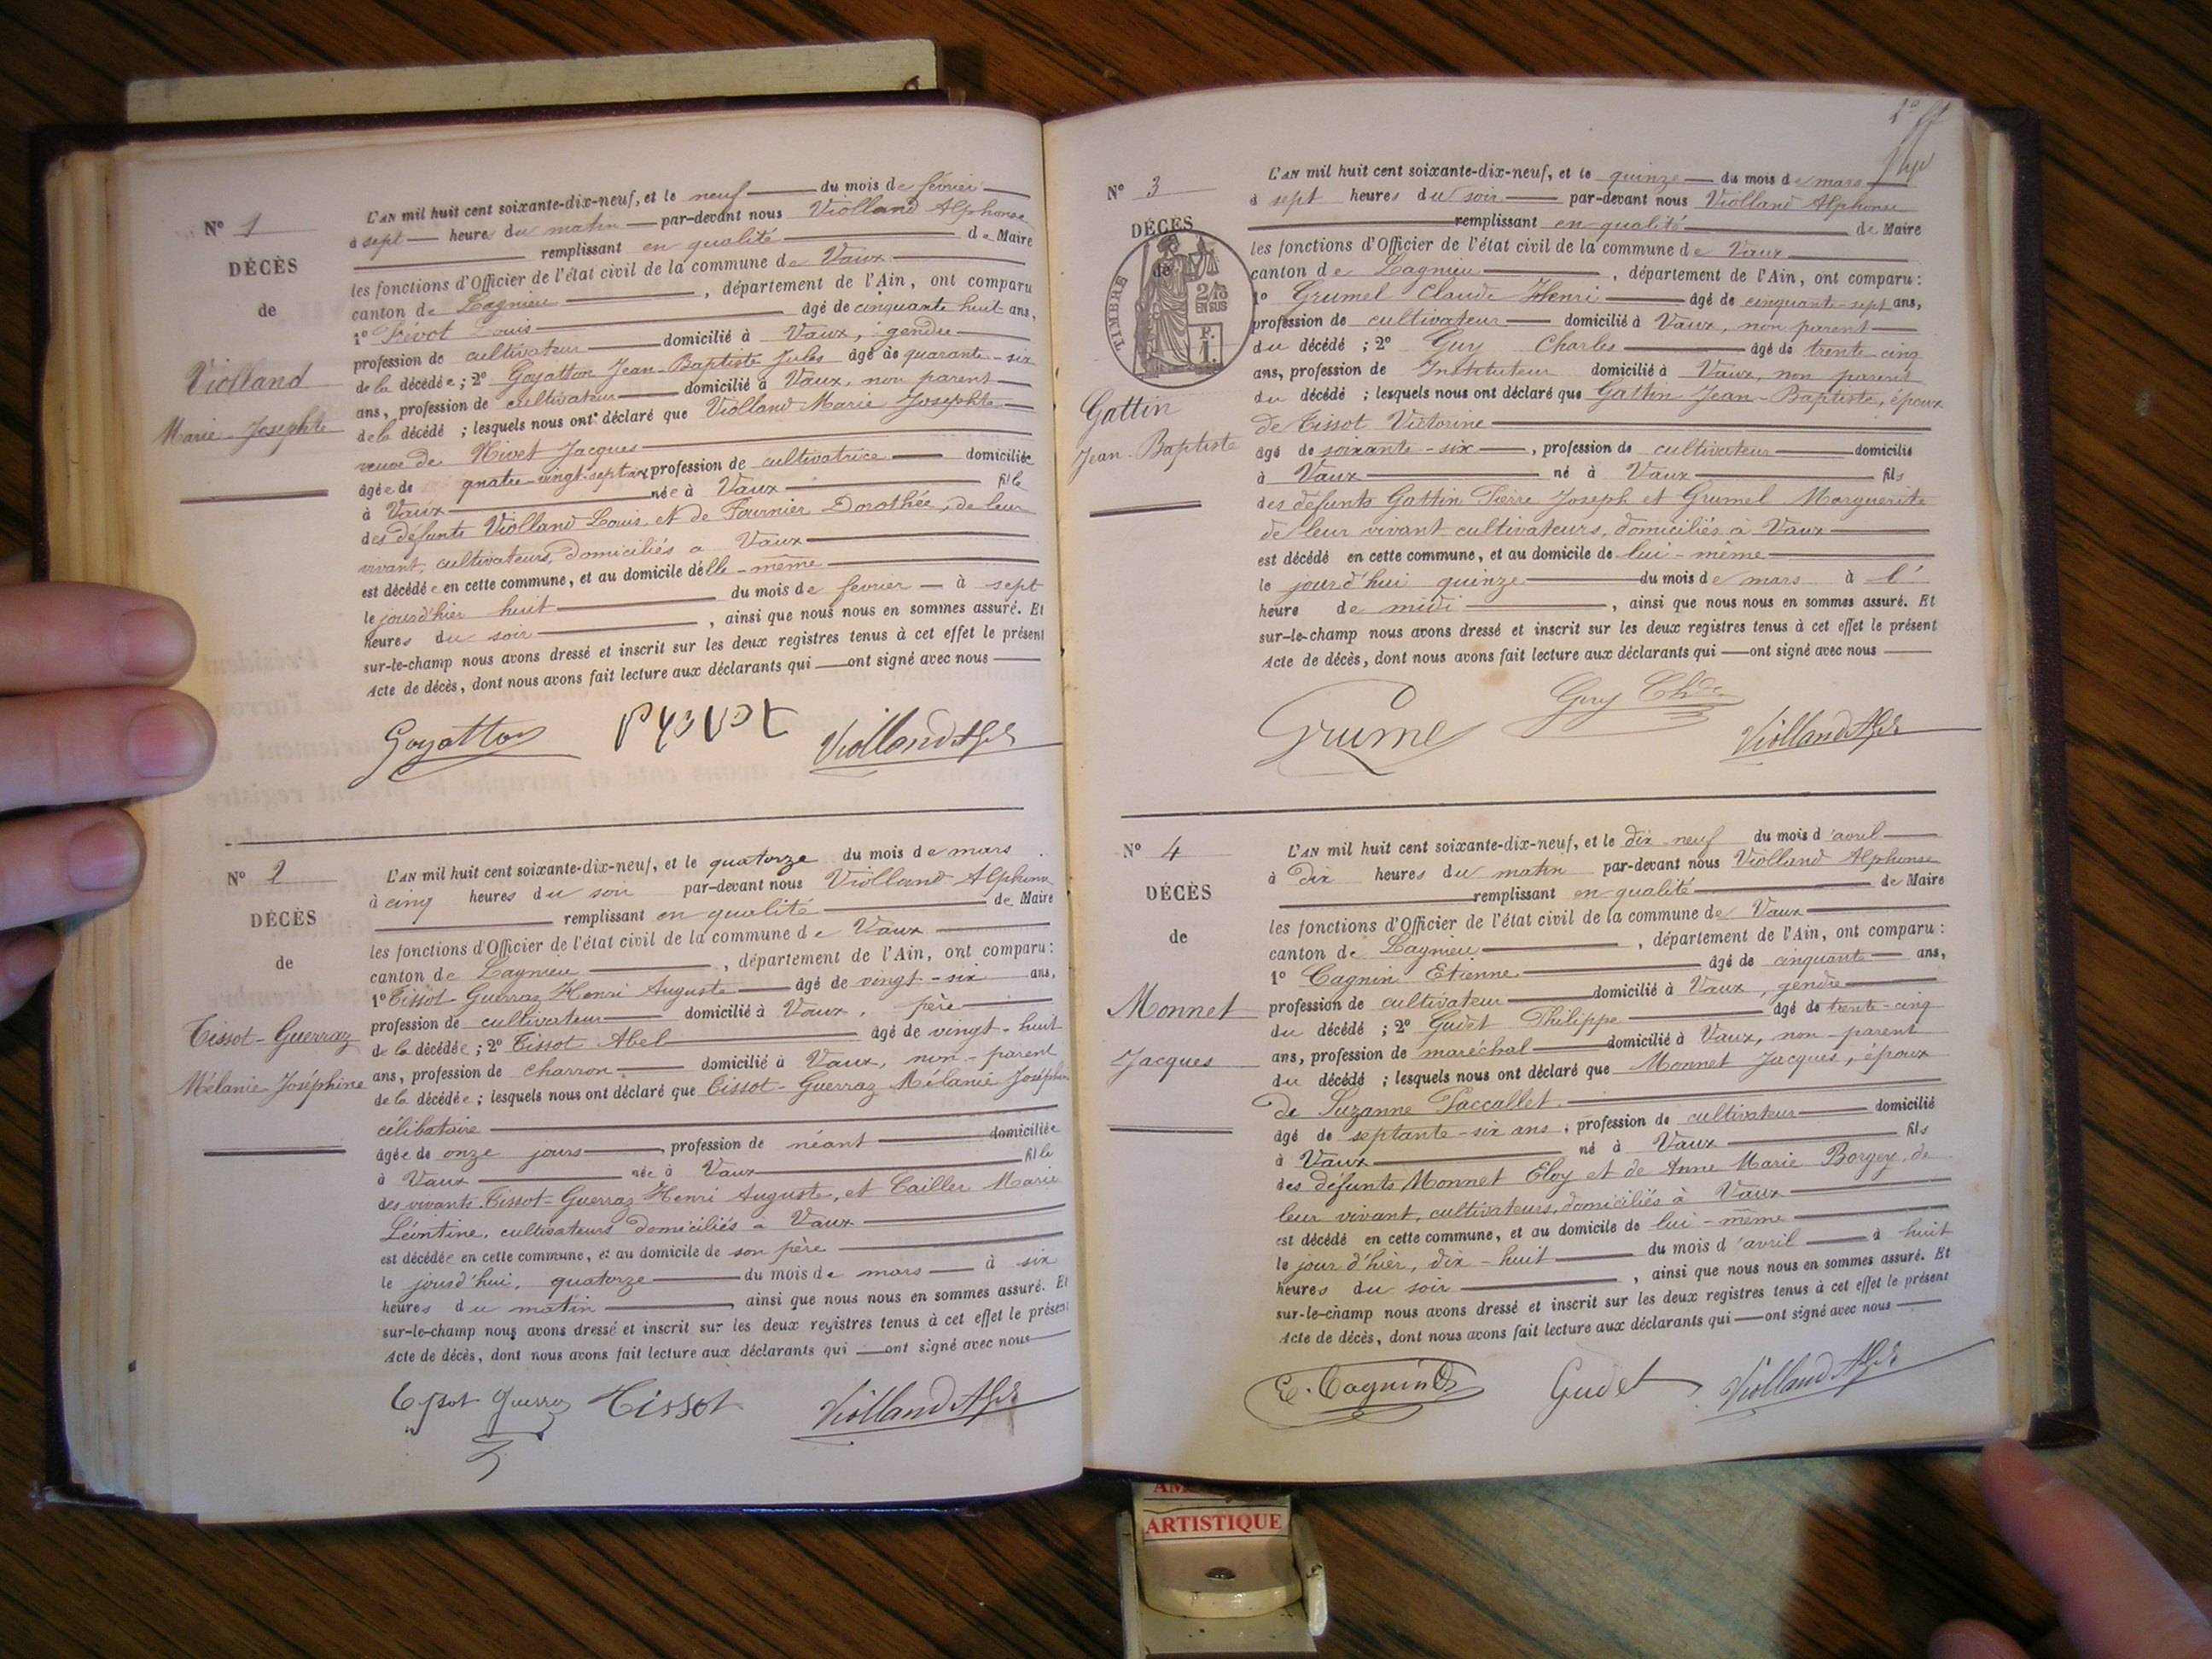 N° 1
DÉCÈS
de
Violland
Marie Josephte
L'AN mil huit cent soixante-dix-neuf, et le neuf du mois de février
à sept heures du matin par-devant nous Violland Alphonse
remplissant en qualité de Maire
les fonctions d'Officier de l'état civil de la commune de Vaux
canton de Lagnieu, département de l'Ain, ont comparu
1° Pévot Louis âgé de cinquante huit ans,
profession de cultivateur domicilié à Vaux, gendre
de la décédée; 2° Goyatton Jean-Baptiste Jules âgé de quarante-six
ans, profession de cultivateur domicilié à Vaux, non parent
de la décédé; lesquels nous ont déclaré que Violland Marie Josephte
veuve de Nivet Jacques
âgée de quatre-vingt-sept ans profession de cultivatrice domiciliée
à Vaux née à Vaux fille
des défunts Violland Louis et de Fournier Dorothée, de leur
vivant, cultivateurs, domiciliés a Vaux
est décédée en cette commune, et au domicile d'elle-même
le jourd'hier huit du mois de fevrier à sept
heures du soir, ainsi que nous nous en sommes assuré. Et
sur-le-champ nous avons dressé et inscrit sur les deux registres tenus à cet effet le présent
Acte de décès, dont nous avons fait lecture aux déclarants qui ont signé avec nous
Goyatton Violland Alph
N° 2
DÉCÈS
de
Tissot-Guerraz
Mélanie Joséphine
L'AN mil huit cent soixante-dix-neuf, et le quatorze du mois de mars
à cinq heures du soir par-devant nous Violland Alphonse
remplissant en qualité de Maire
les fonctions d'Officier de l'état civil de la commune de Vaux
canton de Lagnieu, département de l'Ain, ont comparu:
1° Tissot-Guerraz Henri Auguste âgé de vingt-six ans,
profession de cultivateur domicilié à Vaux, père
de la décédée; 2° Tissot Abel âgé de vingt-huit
ans, profession de charron domicilié à Vaux, non-parent
de la décédée; lesquels nous ont déclaré que Tissot-Guerraz Mélanie Joséphine
célibataire
âgée de onze jours, profession de néant domiciliée
à Vaux née à Vaux fille
des vivants Tissot-Guerraz Henri Auguste, et Tailler Marie
Léontine, cultivateurs domiciliés à Vaux
est décédée en cette commune, et au domicile de son père
le jourd'hui, quatorze du mois de mars à six
heures du matin, ainsi que nous nous en sommes assuré. Et
sur-le-champ nous avons dressé et inscrit sur les deux registres tenus à cet effet le présent
Acte de décès, dont nous avons fait lecture aux déclarants qui ont signé avec nous
Tissot Guerraz Tissot Violland Alph
N° 3
DÉCÈS
de
TIMBRE
2/10
EN SUS
F.
1.
Gattin
Jean-Baptiste
L'AN mil huit cent soixante-dix-neuf, et le quinze du mois de mars
à sept heures du soir par-devant nous Violland Alphonse
remplissant en qualité de Maire
les fonctions d'Officier de l'état civil de la commune de Vaux
canton de Lagnieu, département de l'Ain, ont comparu:
1° Grumel Claude Henri âgé de cinquante-sept ans,
profession de cultivateur domicilié à Vaux, non parent
du décédé; 2° Guy Charles âgé de trente cinq
ans, profession de Instituteur domicilié à Vaux, non parent
du décédé; lesquels nous ont déclaré que Gattin Jean-Baptiste, époux
de Tissot Victorine
âgé de soixante-six, profession de cultivateur domicilié
à Vaux né à Vaux fils
des défunts Gattin Pierre Joseph et Grumel Marguerite
de leur vivant cultivateurs, domiciliés à Vaux
est décédé en cette commune, et au domicile de lui-même
le jourd'hui quinze du mois de mars à l'
heure de midi, ainsi que nous nous en sommes assuré. Et
sur-le-champ nous avons dressé et inscrit sur les deux registres tenus à cet effet le présent
Acte de décès, dont nous avons fait lecture aux déclarants qui ont signé avec nous
Grumel Guy Ch Violland Alph
N° 4
DÉCÈS
de
Monnet
Jacques
L'AN mil huit cent soixante-dix-neuf, et le dix-neuf du mois d'avril
à dix heures du matin par-devant nous Violland Alphonse
remplissant en qualité de Maire
les fonctions d'Officier de l'état civil de la commune de Vaux
canton de Lagnieu, département de l'Ain, ont comparu:
1° Cagnin Etienne âgé de cinquante ans,
profession de cultivateur domicilié à Vaux, gendre
du décédé; 2° Gudet Philippe âgé de trente-cinq
ans, profession de maréchal domicilié à Vaux, non-parent
du décédé; lesquels nous ont déclaré que Monnet Jacques, époux
de Suzanne Paccallet
âgé de septante-six ans, profession de cultivateur domicilié
à Vaux né à Vaux fils
des défunts Monnet Eloy et de Anne Marie Borgey, de
leur vivant, cultivateurs, domiciliés à Vaux
est décédé en cette commune, et au domicile de lui-même
le jour d'hier, dix-huit du mois d'avril à huit
heures du soir, ainsi que nous nous en sommes assuré. Et
sur-le-champ nous avons dressé et inscrit sur les deux registres tenus à cet effet le présent
Acte de décès, dont nous avons fait lecture aux déclarants qui ont signé avec nous
E. Cagnin Gudet Violland Alph
ARTISTIQUE